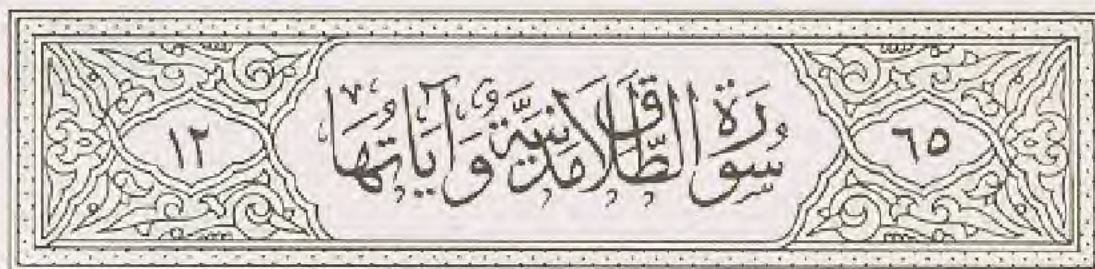 ٦٥ سُورَةُ الطَّلَاقِ مَدَنِيَّةٌ وَآيَاتُهَا ١٢